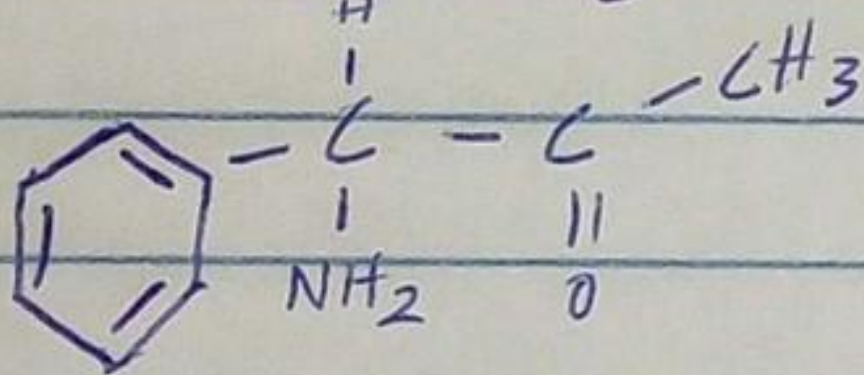 H
C - C - CH3
NH2 O